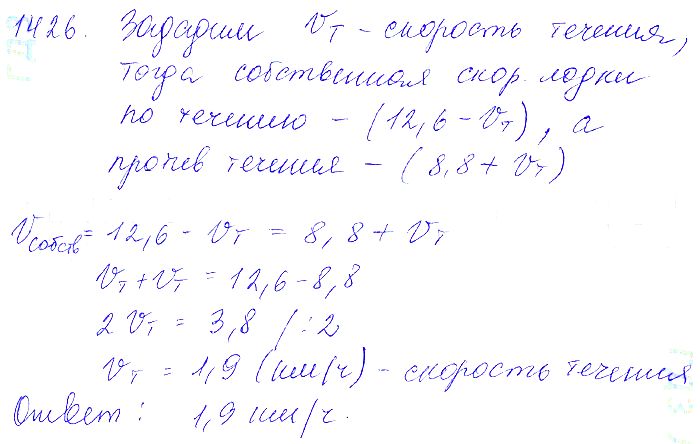 1426. Зададим Vт - скорость течения,
тогда собственная скор. лодки
по течению - (12,6 - Vт), а
против течения - (8,8 + Vт)
Vсобств = 12,6 - Vт = 8,8 + Vт
Vт + Vт = 12,6 - 8,8
2 Vт = 3,8 / : 2
Vт = 1,9 (км/ч) - скорость течения
Ответ: 1,9 км/ч.